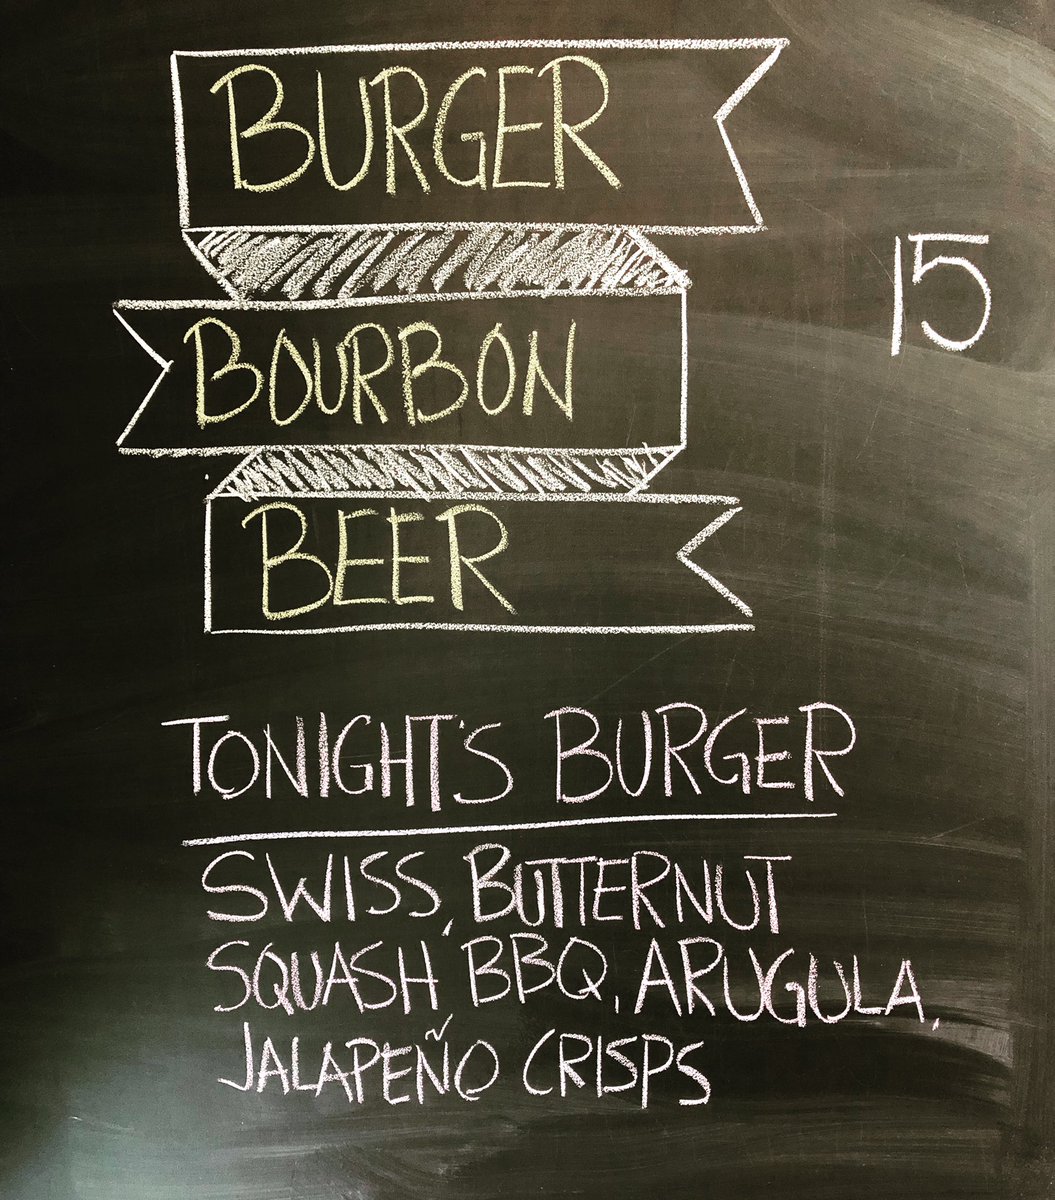 BURGER
BOURBON
15
BEER
TONIGHT'S BURGER
SWISS, BUTTERNUT
SQUASH BBQ, ARUGULA,
JALAPEÑO CRISPS